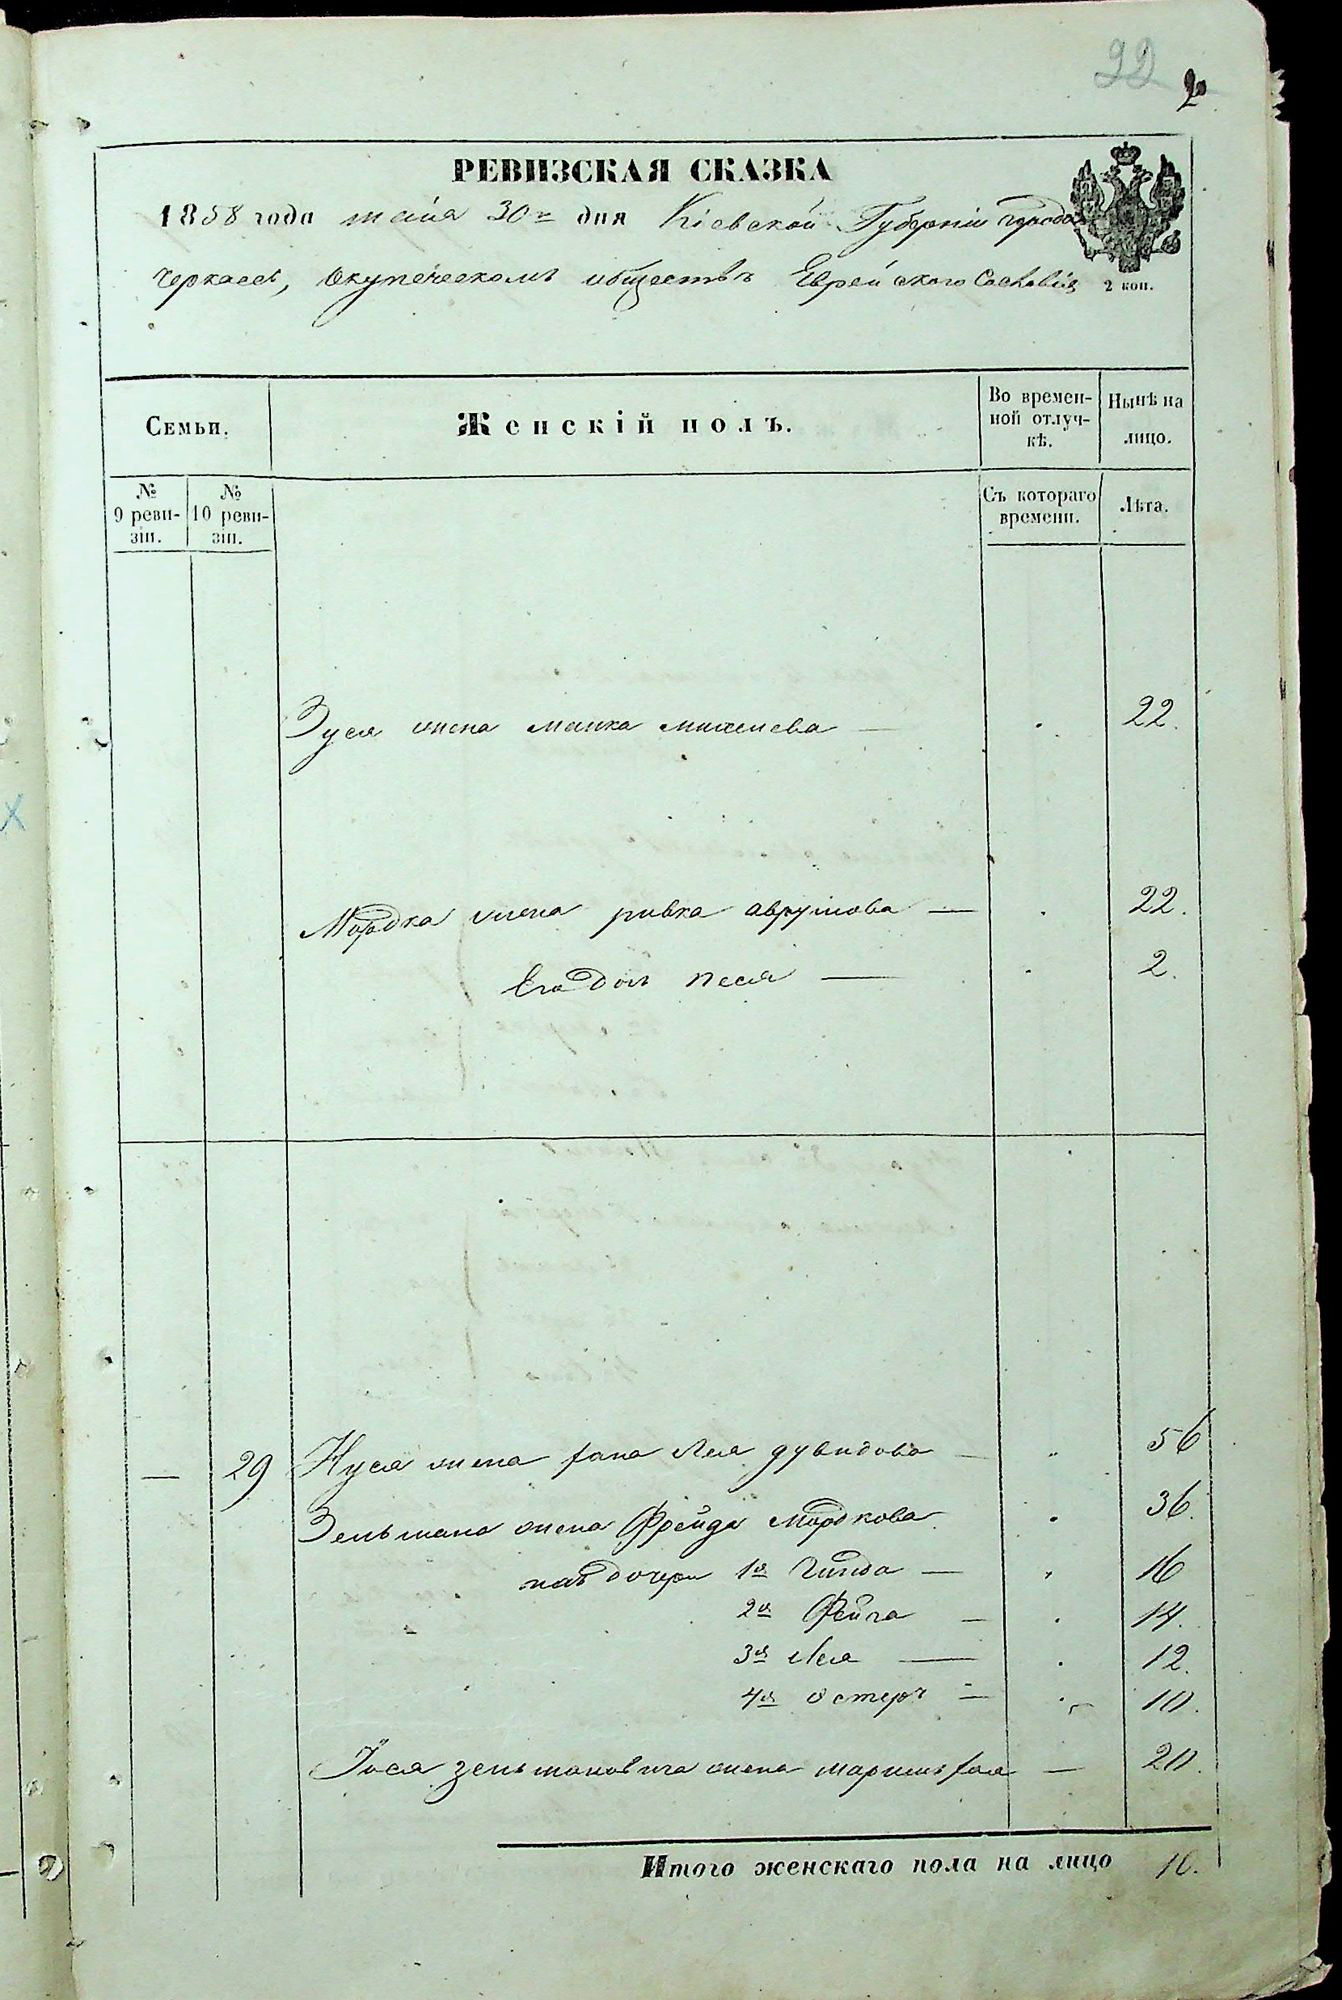 22
РЕВИЗСКАЯ СКАЗКА
1858 года мая 30го дня Кіевской Губерніи города
Черкасс, Окупеческомъ обществѣ Еврейского Сословія
2 коп.
Семьи.
Женскій полъ.
Во времен-
ной отлуч-
кѣ.
Нынѣ на
лицо.
№
9 реви-
зіи.
№
10 реви-
зіи.
Съ котораго
времени.
Лѣта.
Зуся жена Малка Михелева — 22.
Мордка жена Ривка Аврумова — 22.
Его дочь Песя — 2.
— 29 Нуся жена Хана Лея Дувидова — 56
Зельмана жена Фрейда Мордкова 36.
дочери 1я Гинда — 16
2я Фейга — 14.
3я Лея — 12.
4я Эстеръ — 10.
Іося Зельмановича жена Маримъ Хая — 20.
Итого женскаго пола на лицо 10.